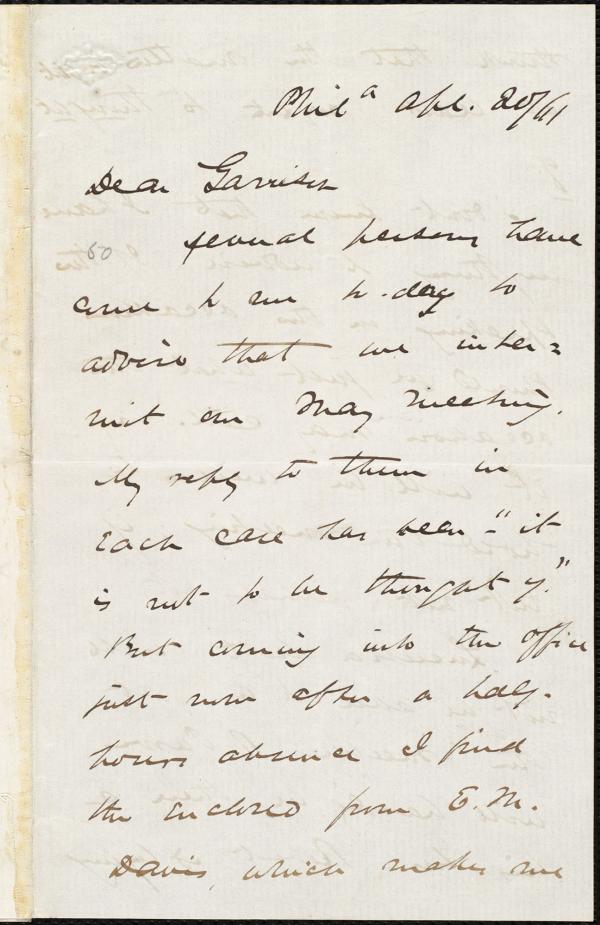 Phil<sup>a</sup> Apl. 20/61
Dear Garrison
50
Several persons have
come to me to-day to
advise that we inter=
mit our May meeting.
My reply to them in
each case has been - "it
is not to be thought of."
But coming into the office
just now after a half-
hours absence I find
the enclosed from E. M.
Davis, which makes me